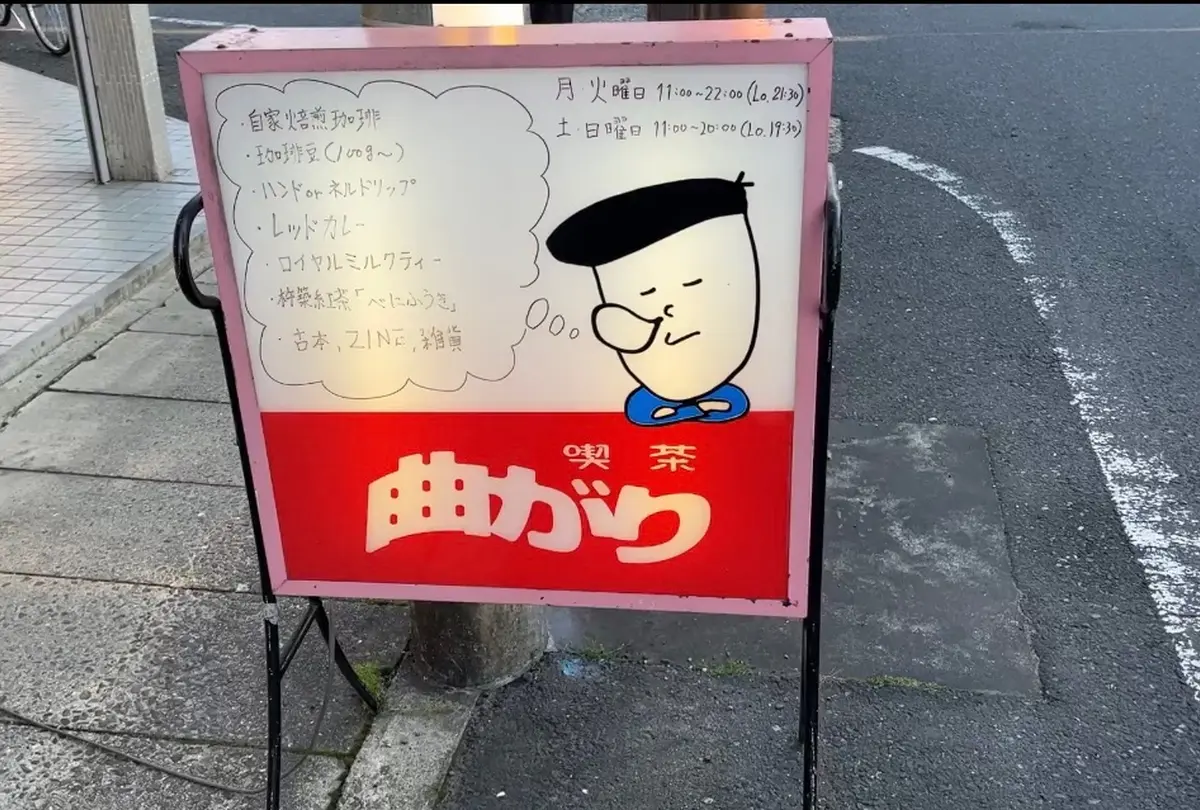 ・自家焙煎珈琲
・珈琲豆(100g〜)
・ハンドorネルドリップ
・レッドカレー
・ロイヤルミルクティー
・杵築紅茶「べにふうき」
・古本,ZINE,雑貨
月・火曜日 11:00~22:00(Lo.21:30)
土・日曜日 11:00~20:00(Lo.19:30)
喫茶
曲がり